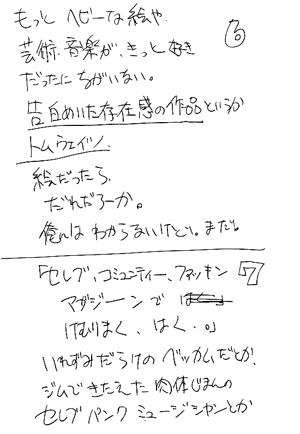 もっと ヘビーな絵や
芸術、音楽が、きっと好き
⑥
だったにちがいない。
告白めいた存在感の作品というか
トムウェイツ。
絵だったら、
だれだろーか。
俺にはわからないけど。まだ。
「セレブ、コミュニティー、ファッキン
7
マガジーンで
けむりまく、はく。」
いれずみだらけのベッカムだとか、
ジムできたえた肉体じまんの
セレブパンクミュージシャンとか